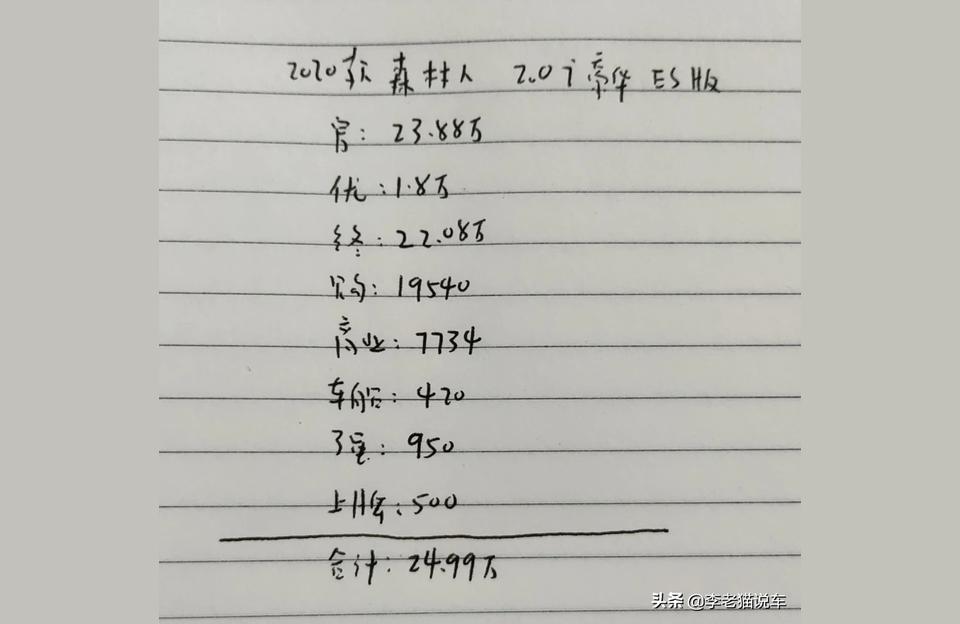 2020款 森林人 2.0i 豪华 ES版
官：23.88万
优：1.8万
终：22.08万
购：19540
商业：7734
车船：420
交强：950
上牌：500
合计：24.99万
头条 @李老猫说车